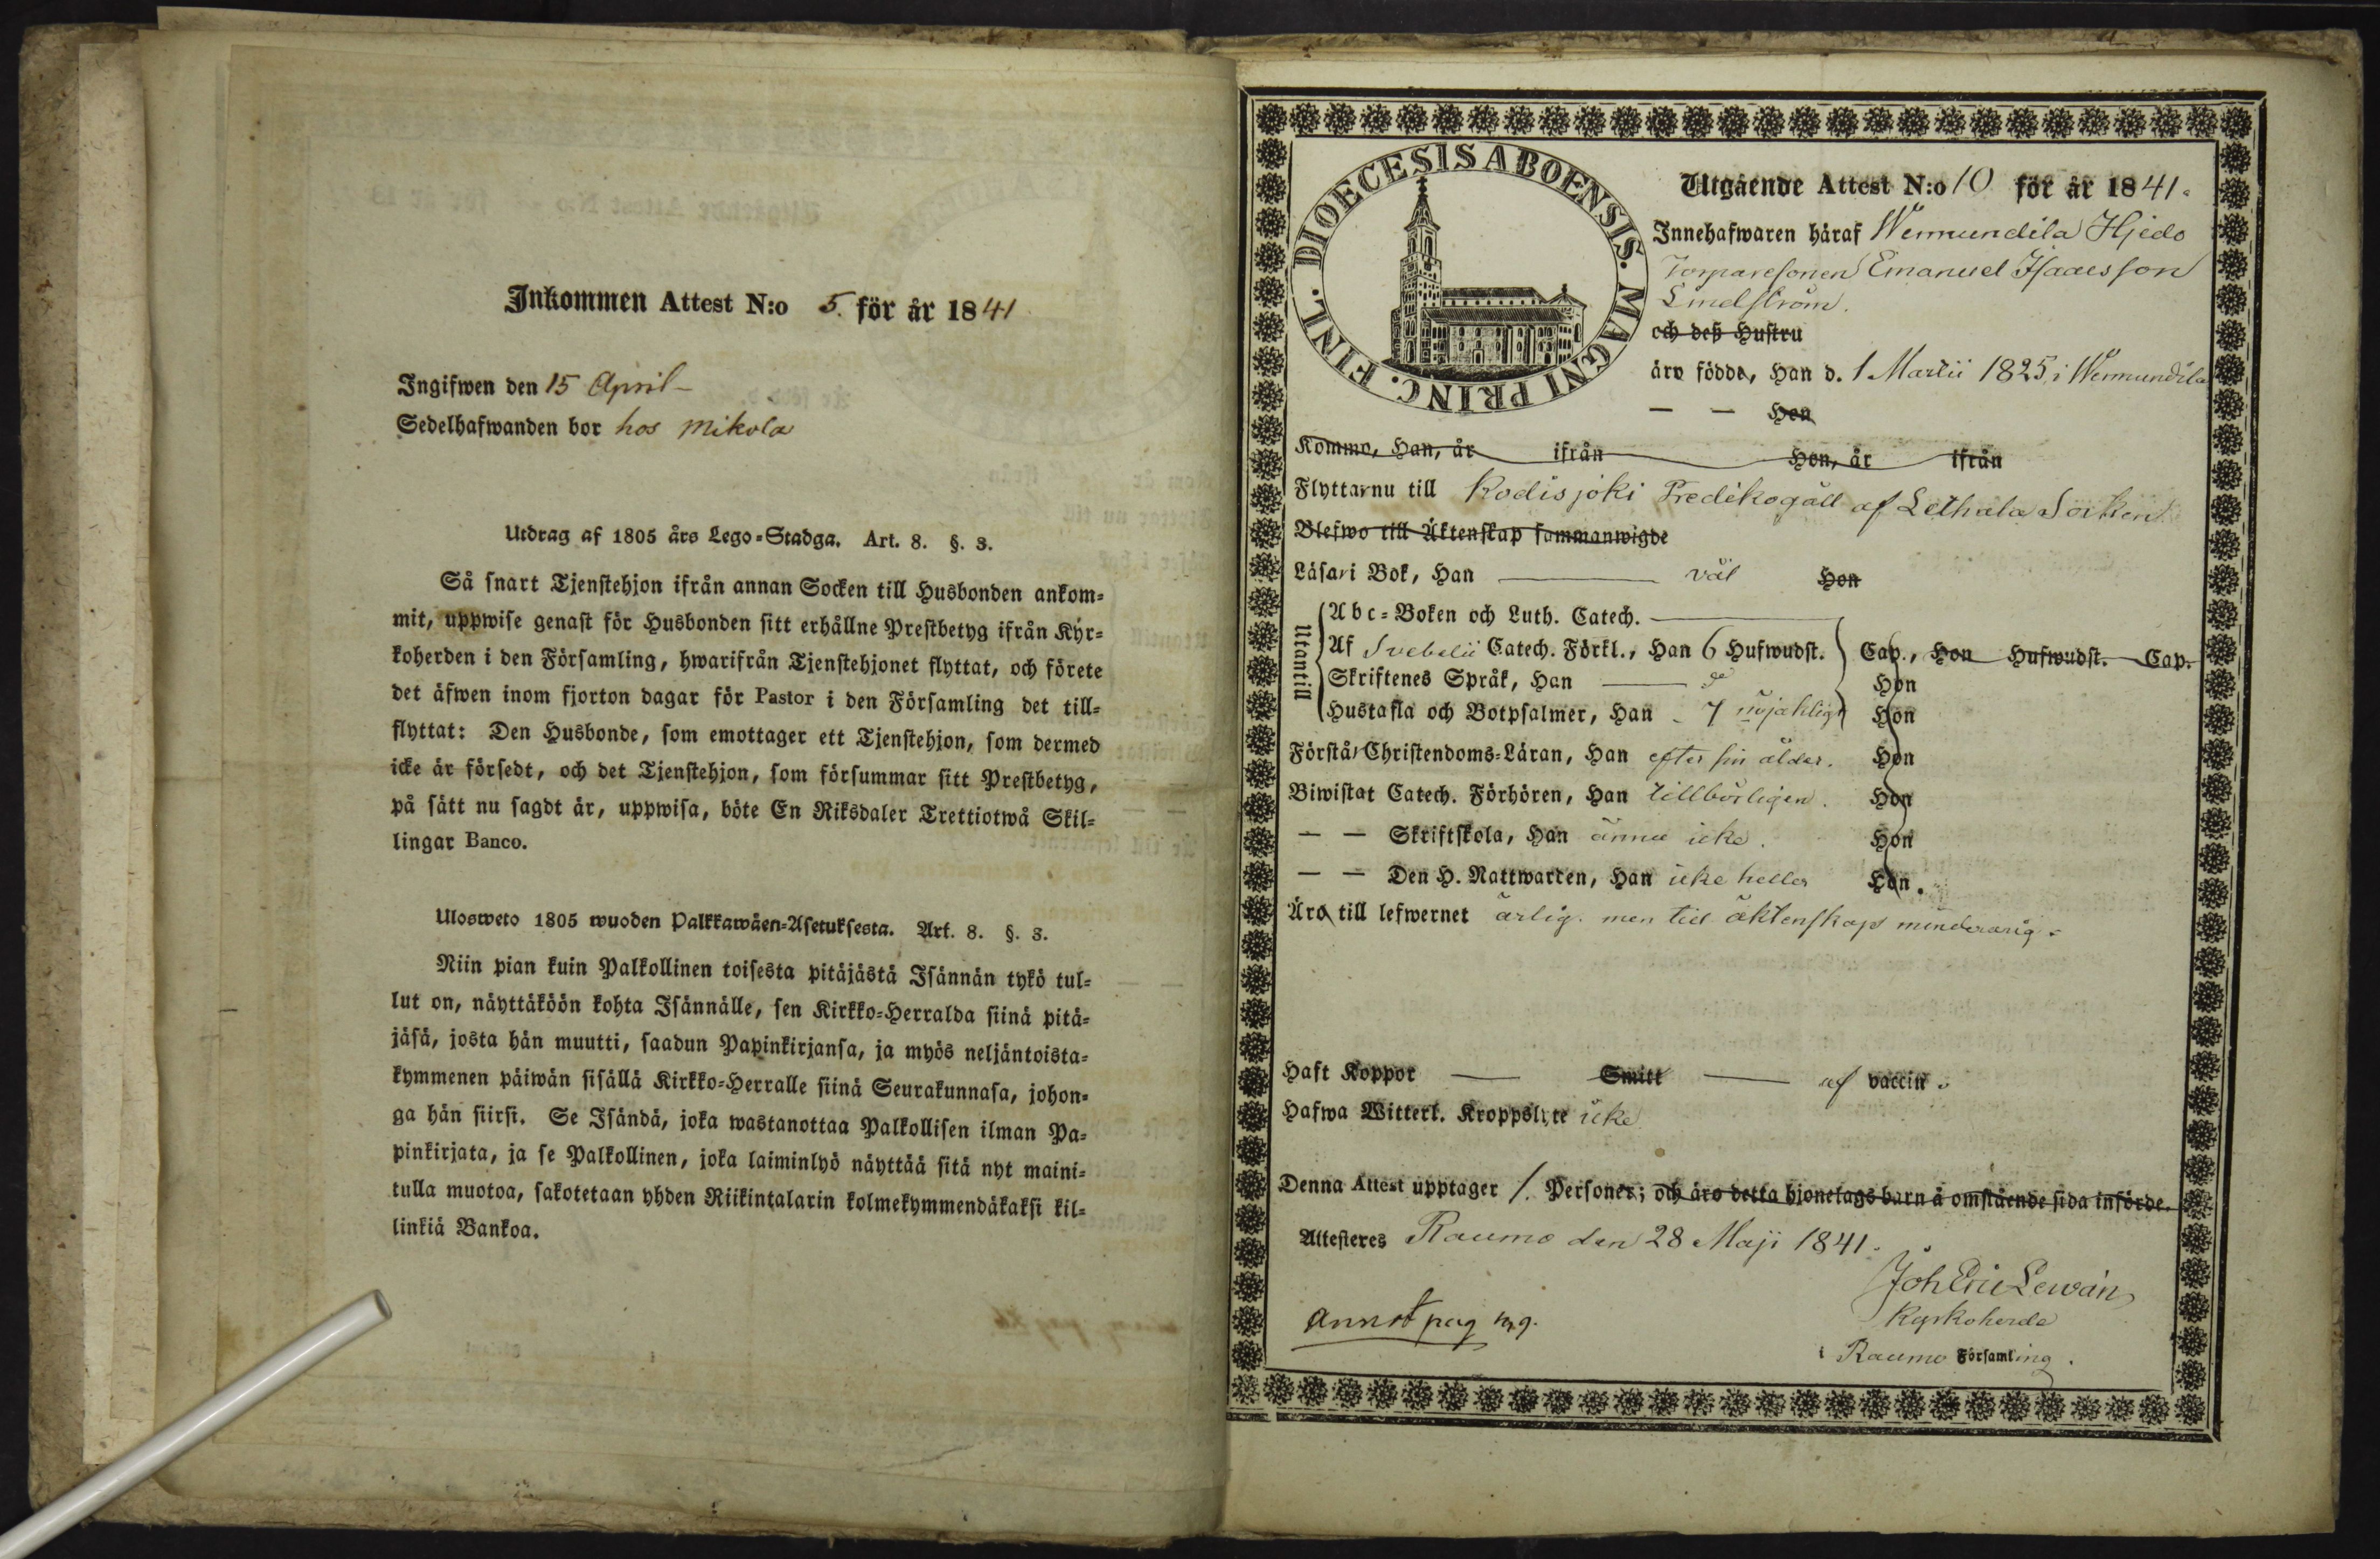 Inkommen Attest N:o 5. för år 1841
Ingifwen den 15 April -
Sedelhafwanden bor hos Mikola
Utdrag af 1805 års Lego=Stadga. Art. 8. §. 3.
Så snart Tjenstehjon ifrån annan Socken till Husbonden ankom=
mit, uppwise genast för Husbonden sitt erhållne Prestbetyg ifrån Kyr=
koherden i den Församling, hwarifrån Tjenstehjonet flyttat, och förete
det äfwen inom fjorton dagar för Pastor i den Församling det till=
flyttat: Den Husbonde, som emottager ett Tjenstehjon, som dermed
icke är försedt, och det Tjenstehjon, som försummar sitt Prestbetyg,
på sätt nu sagdt är, uppwisa, böte En Riksdaler Trettiotwå Skil=
lingar Banco.
Ulosweto 1805 wuoden Palkkawäen=Asetuksesta. Art. 8. §. 3.
Niin pian kuin Palkollinen toisesta pitäjästä Isännän tykö tul=
lut on, näyttäköön kohta Isännälle, sen Kirkko=Herralda siinä pitä=
jäsä, josta hän muutti, saadun Papinkirjansa, ja myös neljäntoista=
kymmenen päiwän sisällä Kirkko=Herralle siinä Seurakunnasa, johon=
ga hän siirsi. Se Isändä, joka wastanottaa Palkollisen ilman Pa=
pinkirjata, ja se Palkollinen, joka laiminlyö näyttää sitä nyt maini=
tulla muotoa, sakotetaan yhden Riikintalarin kolmekymmendäkaksi kil=
linkiä Bankoa.
DIOECESIS ABOENSIS. MAGNI PRINC. FINL.
Utgående Attest N:o 10 för år 1841.
Innehafwaren häraf Wermundila Hjedo
Torparesonen Emanuel Isaacsson
Lindström.
och deß Hustru
äro födde, Han d. 1 Martii 1825, i Wermundila
— — Hon
Kommo, Han, år ifrån Hon, år ifrån
Flyttar nu till Kodisjoki Predikogäll af Lethala Socken
Blefwo till Äktenskap sammanwigde
Läsa i Bok, Han — väl Hon
Utantill
Abc=Boken och Luth. Catech. —
Af Svebelii Catech. Förkl., Han 6 Hufwudst. Cap., Hon Hufwudst. Cap.
Skriftenes Språk, Han — Hon
Hustafla och Botpsalmer, Han - 7 nöjaktligt Hon
Förstå Christendoms=Läran, Han efter sin ålder. Hon
Biwistat Catech. Förhören, Han tillbörligen. Hon
— — Skriftskola, Han ännu icke. Hon
— — Den H. Nattwarden, Han icke heller Hon.
Äro till lefwernet ärlig. men till äktenskap minderårig.
Haft Koppor — Smitt — af vaccin.
Hafwa Witterl. Kroppslyte icke
Denna Attest upptager 1. Personer; och äro detta hjonelags barn å omstående sida införde.
Attesteres Raumo den 28 Maji 1841.
Joh Eric Lewán
Kyrkoherde
annot pag
i Raumo Församling.